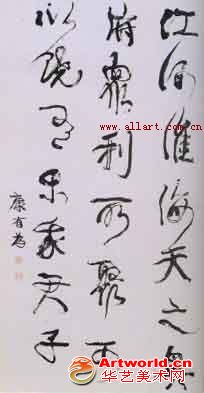 江河淮海天之奥
府眾利所聚可
以饒有樂我君子
康有為
www.allart.com.cn
Artworld.cn
华艺美术网